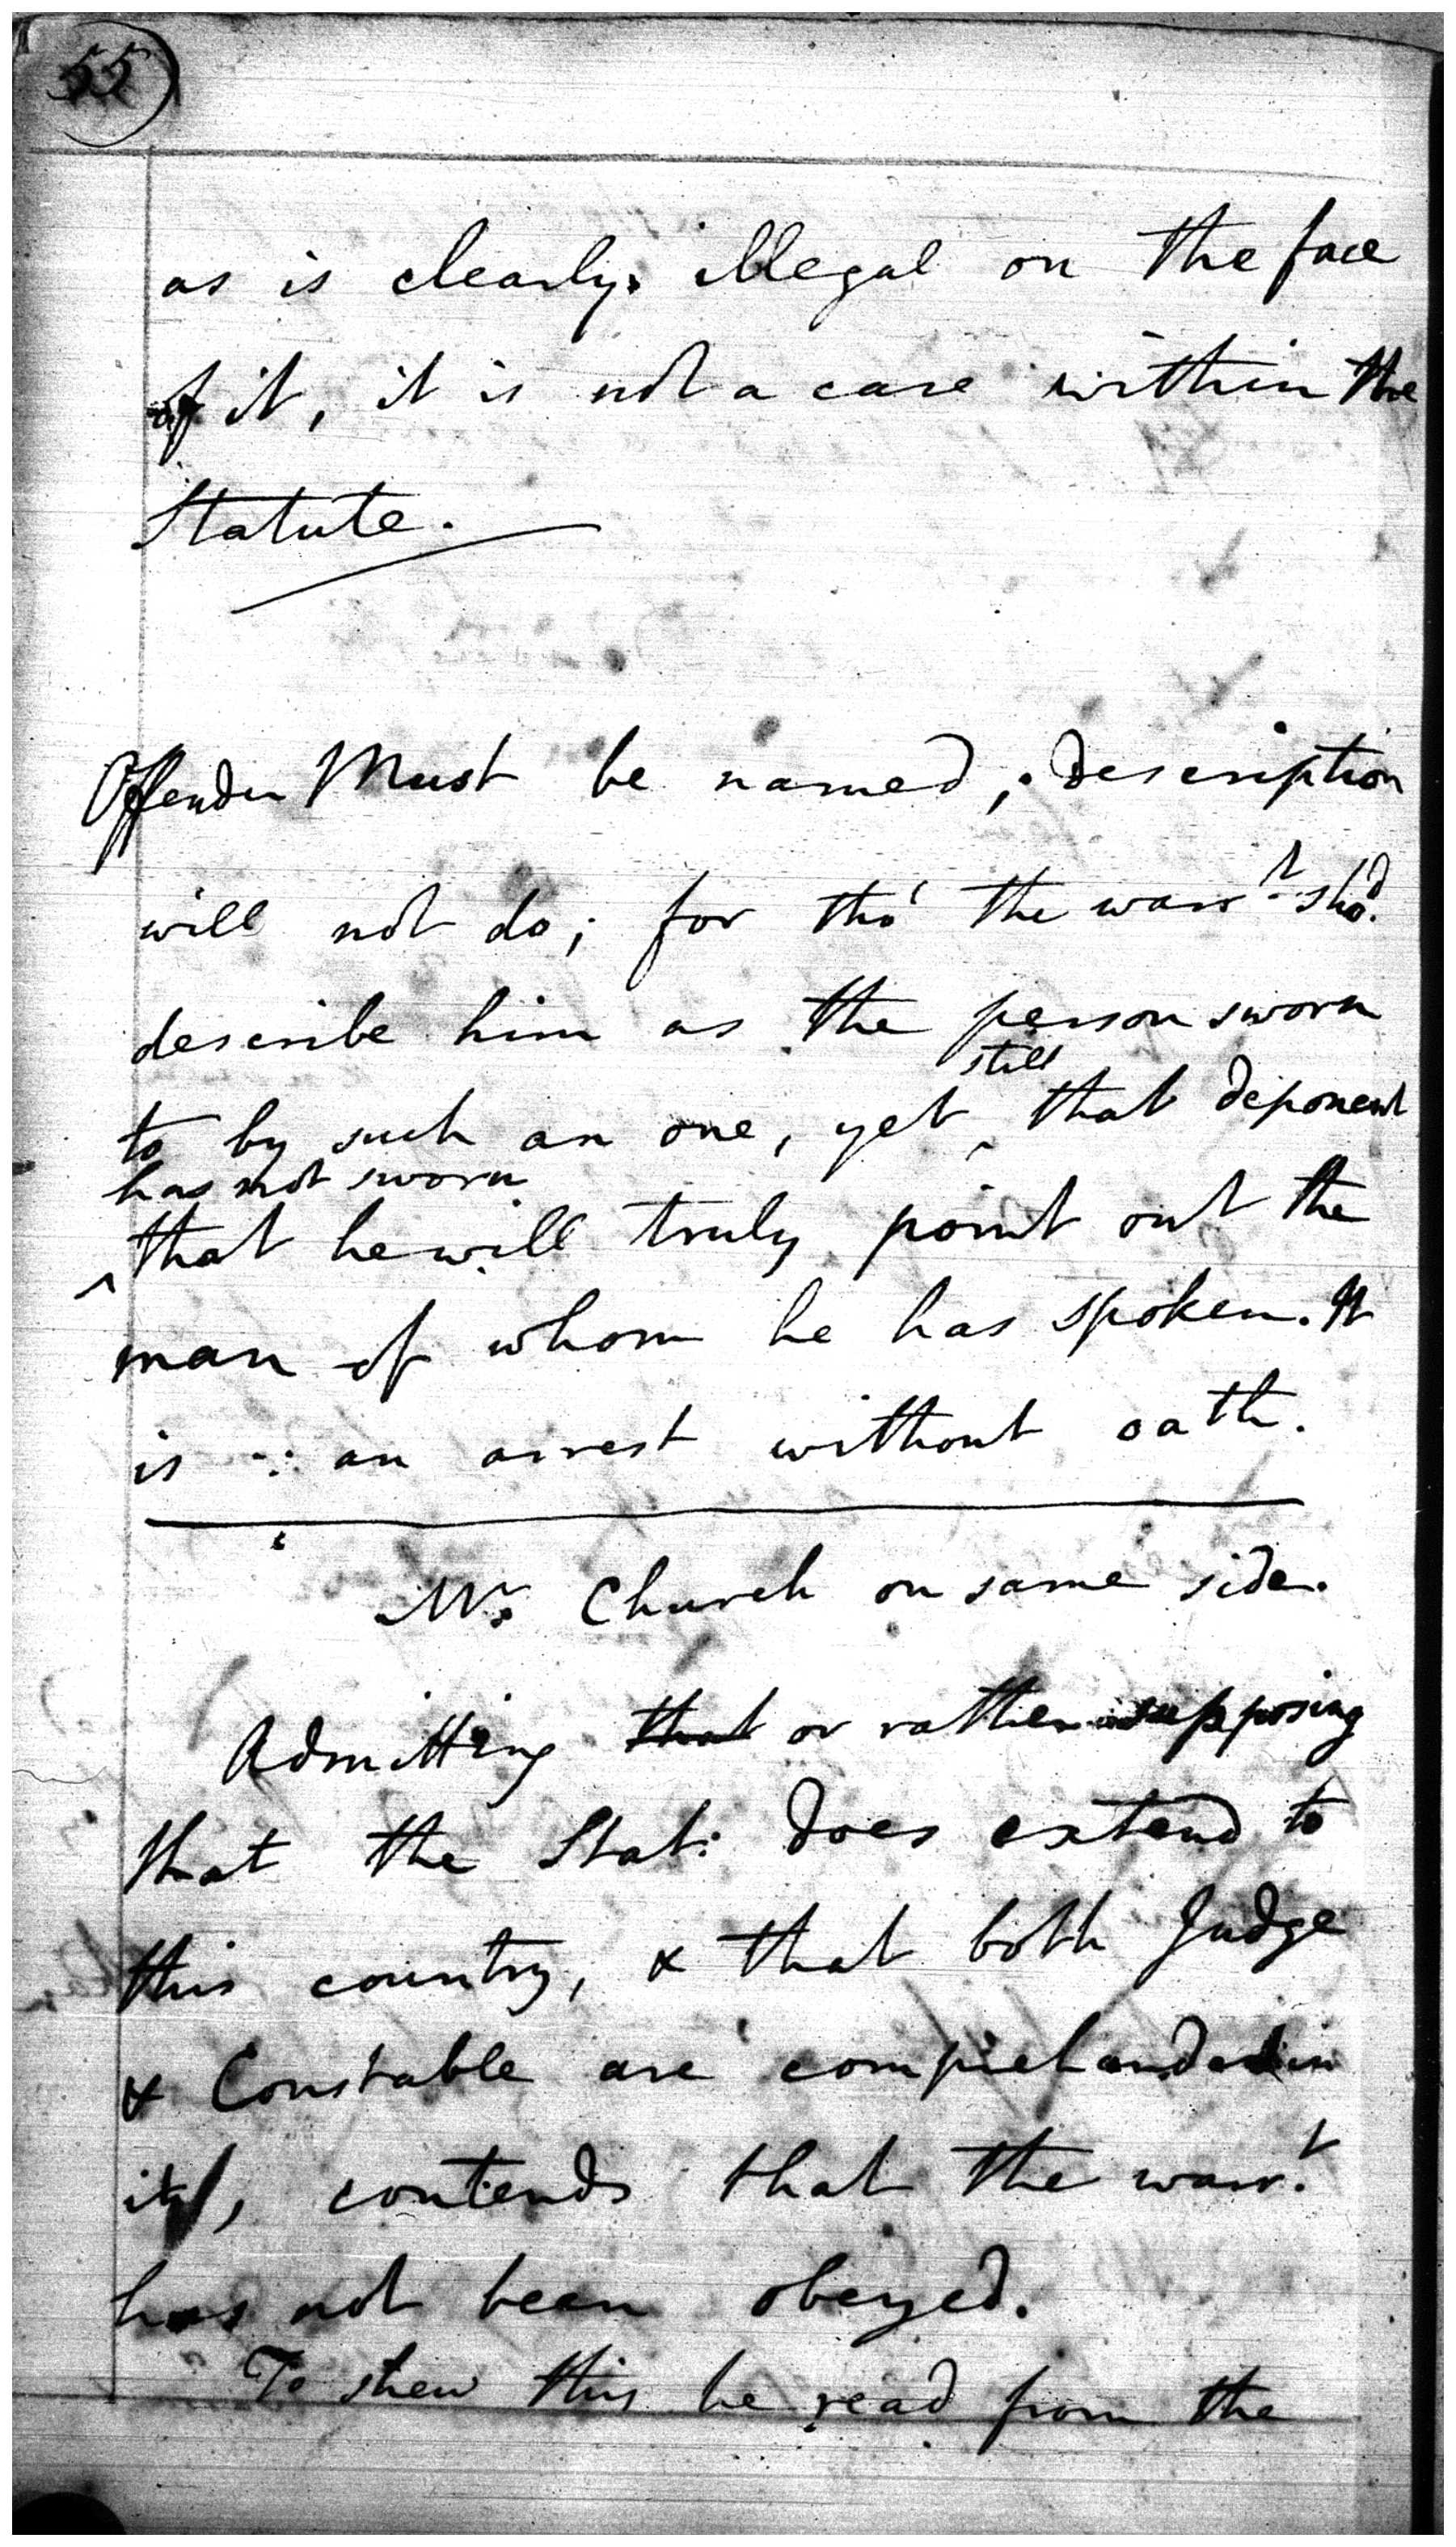 55
as is clearly illegal on the face
of it, it is not a case within the
Statute.
Offender Must be named, description
will not do; for tho' the warr.t sho.d
describe him as the person sworn
still
to by such an one, yet ‸ that deponent
has not sworn
‸ that he will truly point out the
man of whom he has spoken. It
is ∴ an arrest without oath.
Mr. Church on same side.
Admitting that or rather supposing
that the Stat: does extend to
this country, & that both Judge
& Constable are comprehended in
it, contends that the warr.t
has not been obeyed.
To shew this he read from the